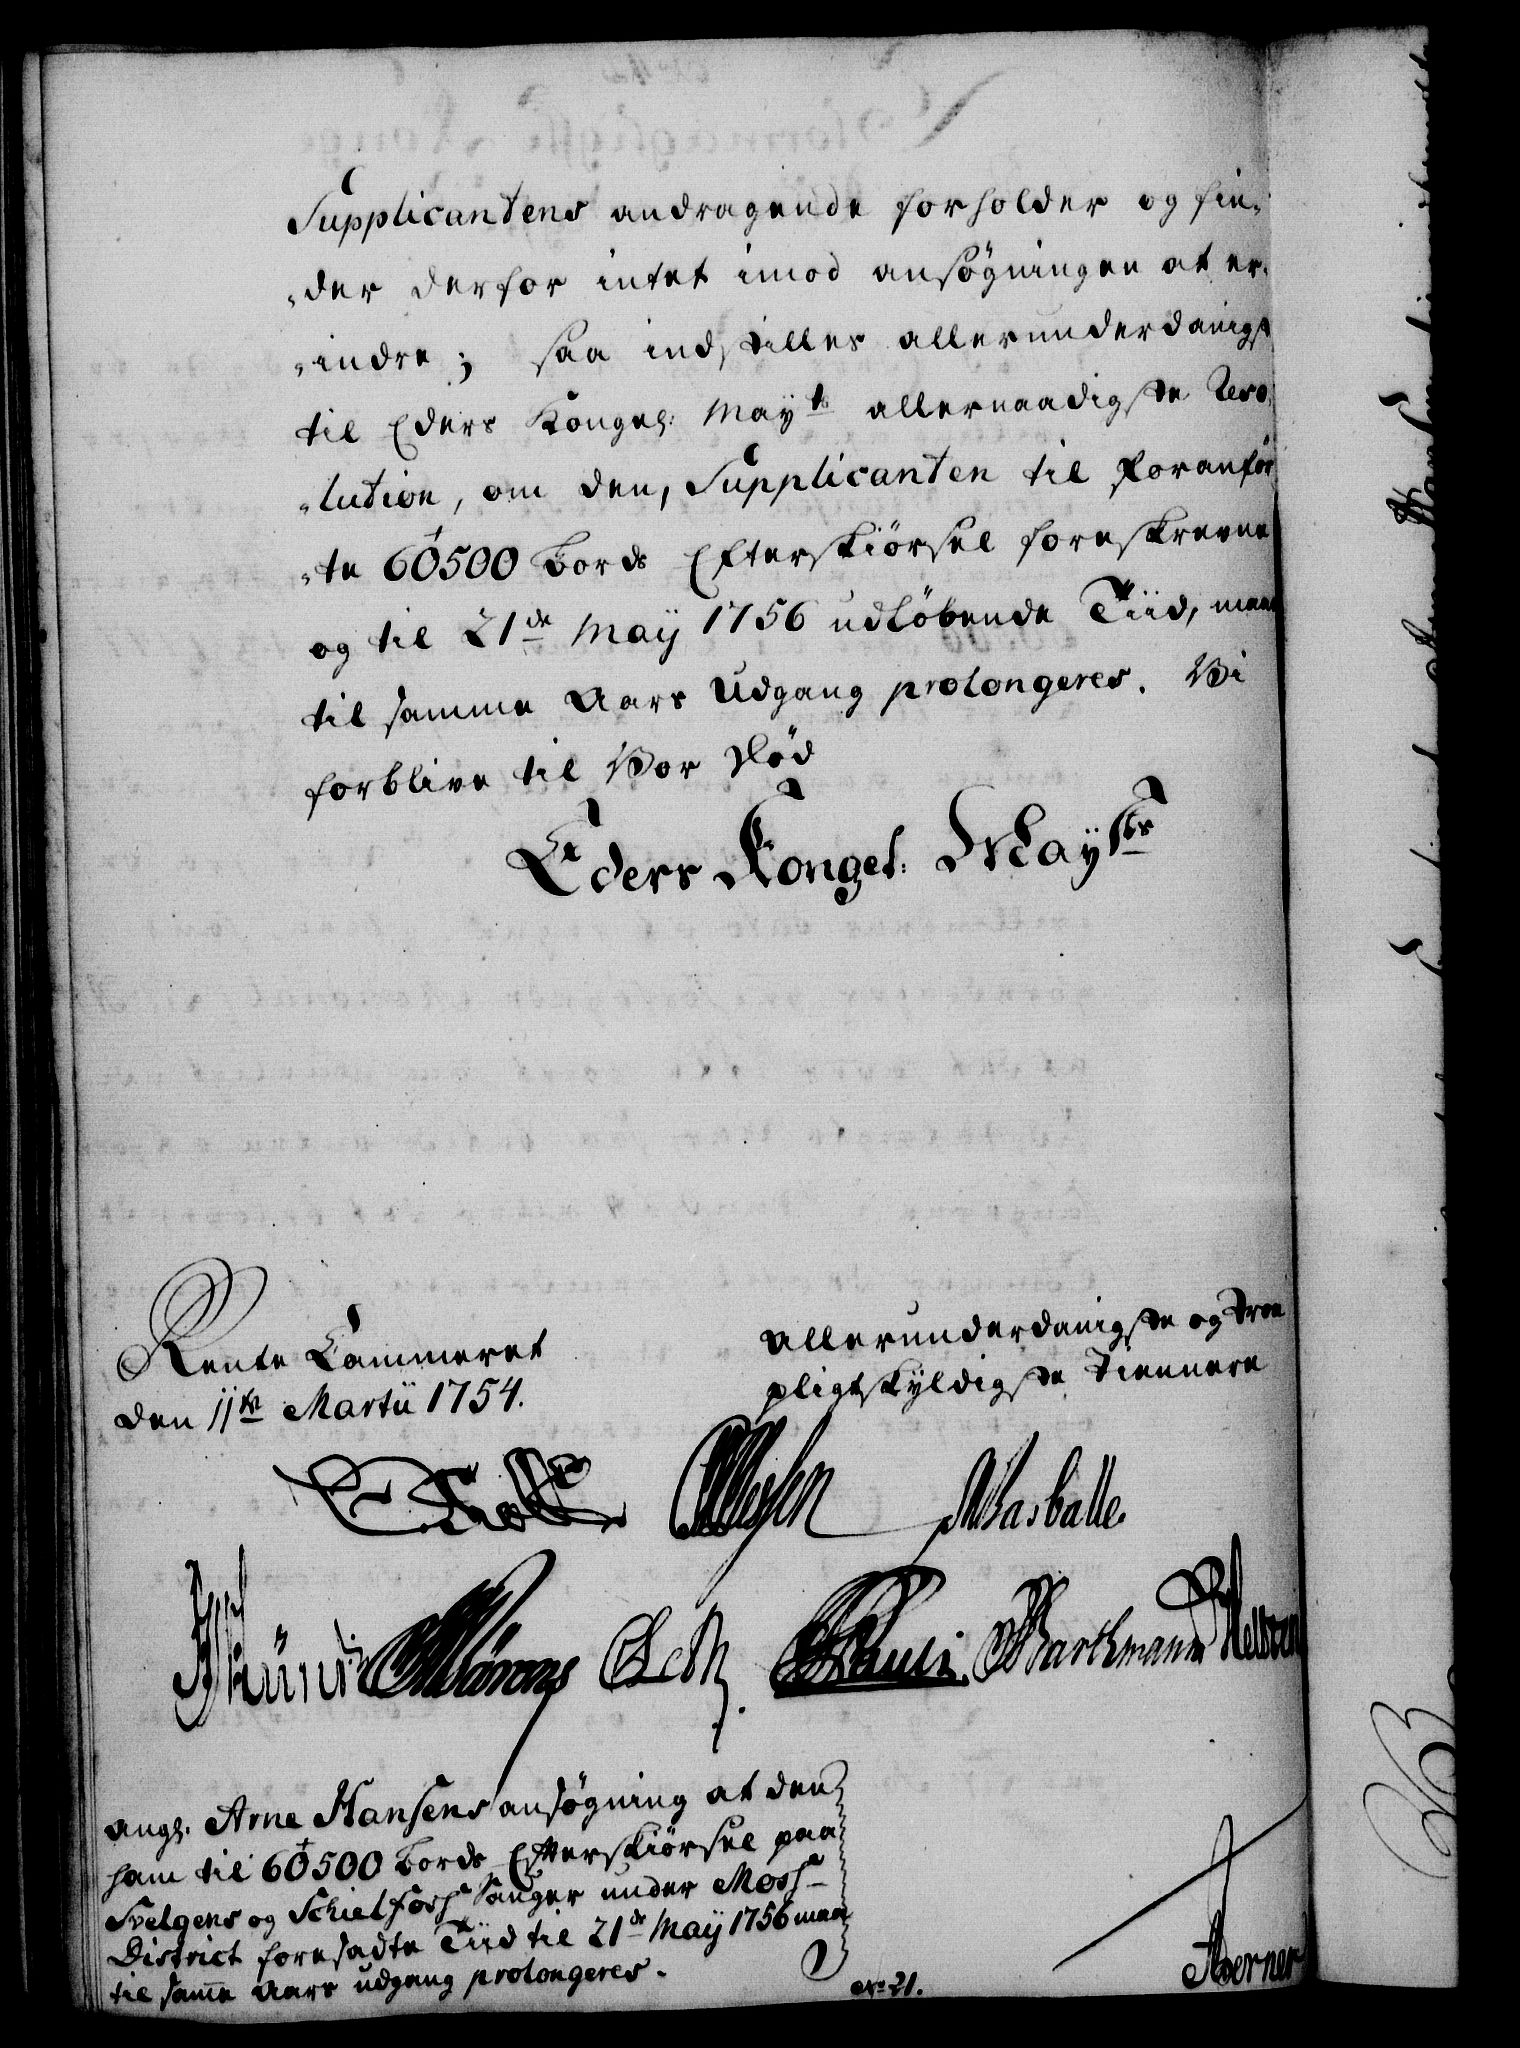 Supplicantens andragende forholder og fin-
-der derfor intet imod ansøgningen at er-
-indre; saa indstilles allerunderdanigst
til Eders Kongel: Mayts allernaadigste Reso-
-lution, om den, Supplicanten til foranfør
-te 60500 Bords Efterskiørsel foreskrevne
og til 21de May 1756 udløbende Tiid, maae
til samme Aars Udgang prolongeres. Vi
forblive til Vor Død
Eders Kongel: Mayts
Rente Cammeret
den 11te Martii 1754.
allerunderdanigste og troe
pligtskyldigste Tiennere
Masballe.
Pauli. Barthmann
angl. Arne Hansens ansøgning at den
ham til 60500 Bords Efterskiørsel paa
Svelgens og Schielfoss Sauger under Moss
District foresadte Tiid til 21de May 1756 maa
til samme Aars udgang prolongeres.
No 21.